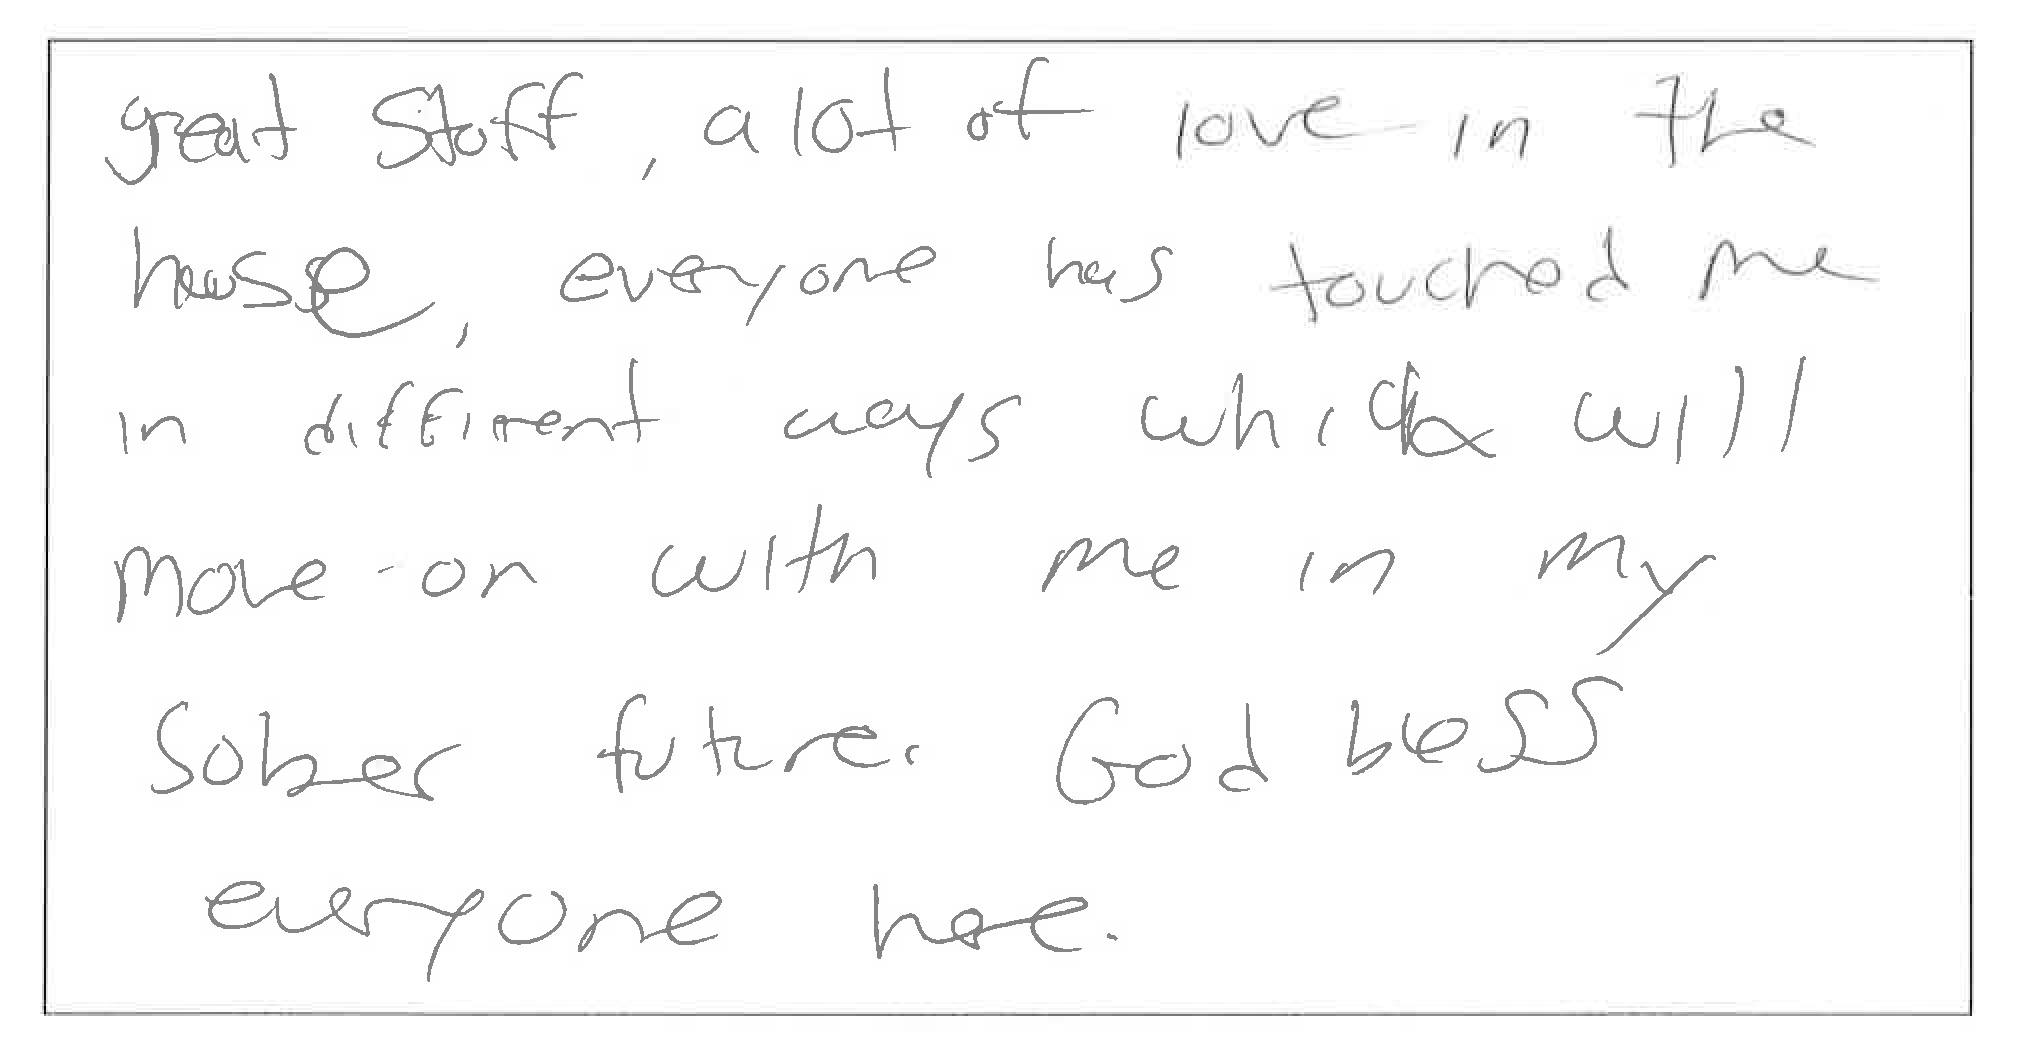 great Stoff, a lot of love in the
house, everyone has touched me
in diffirent ways which will
move-on with me in my
Sober future. God bless
everyone here.